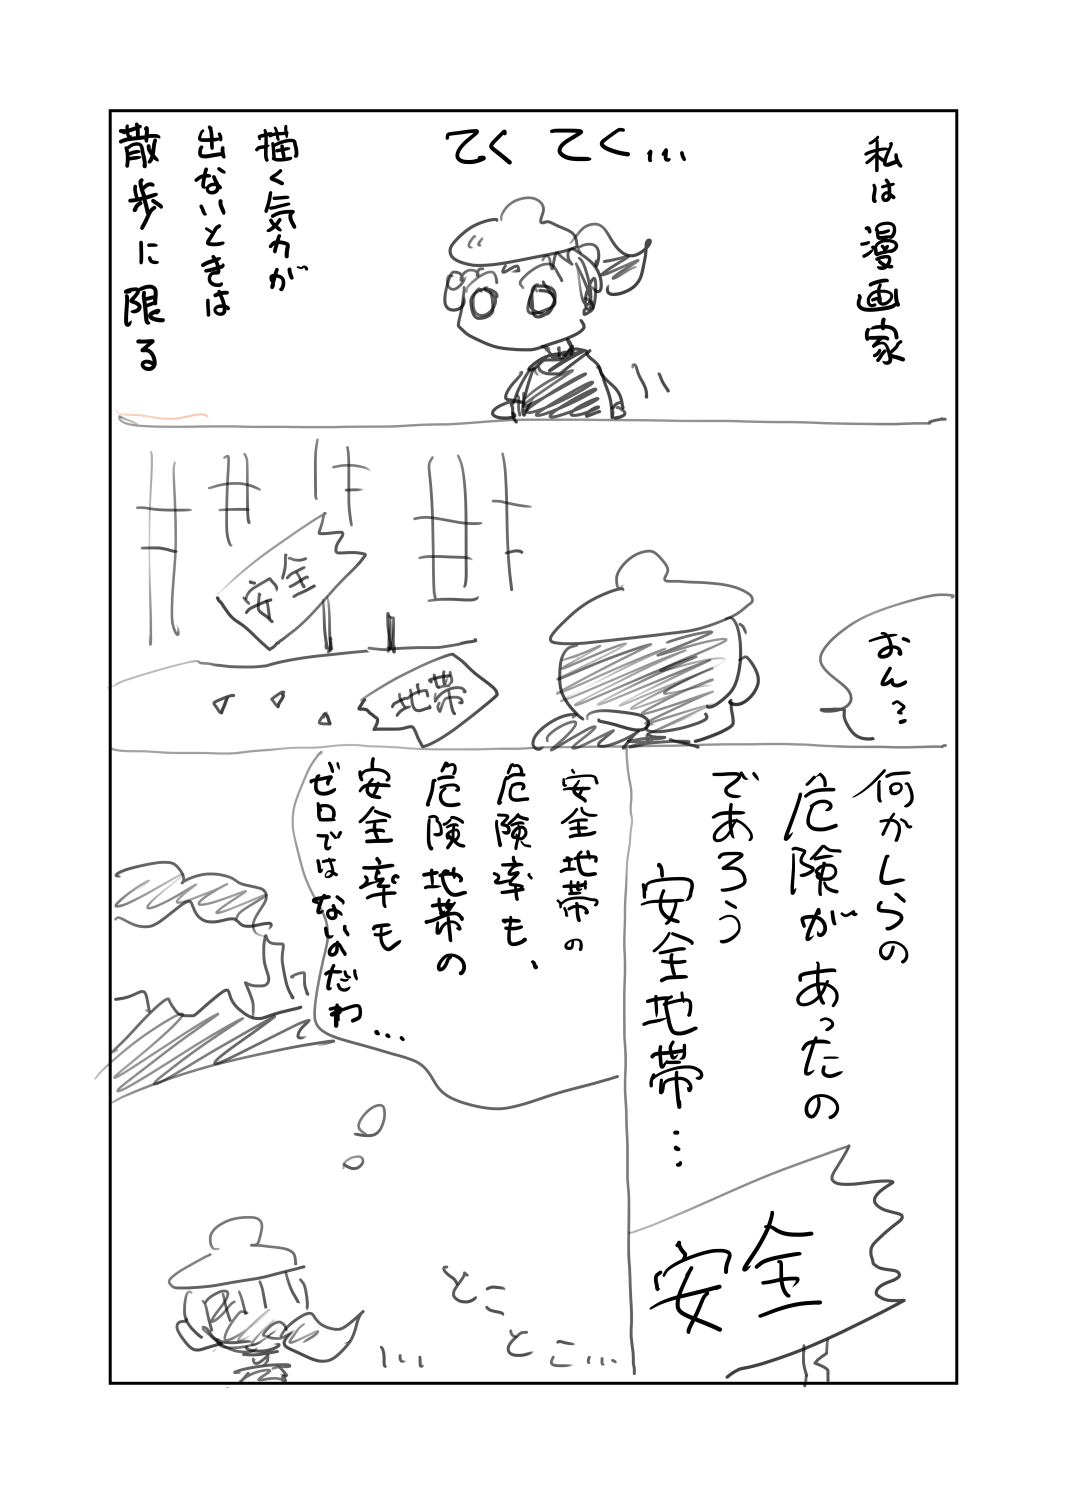 私は漫画家
てくてく…
描く気力が
出ないときは
散歩に限る
おん?
安全
地帯
何かしらの
危険があったの
であろう
安全地帯…
安全
安全地帯の
危険率も、
危険地帯の
安全率も
ゼロではないのだわ…
とこ
とこ…